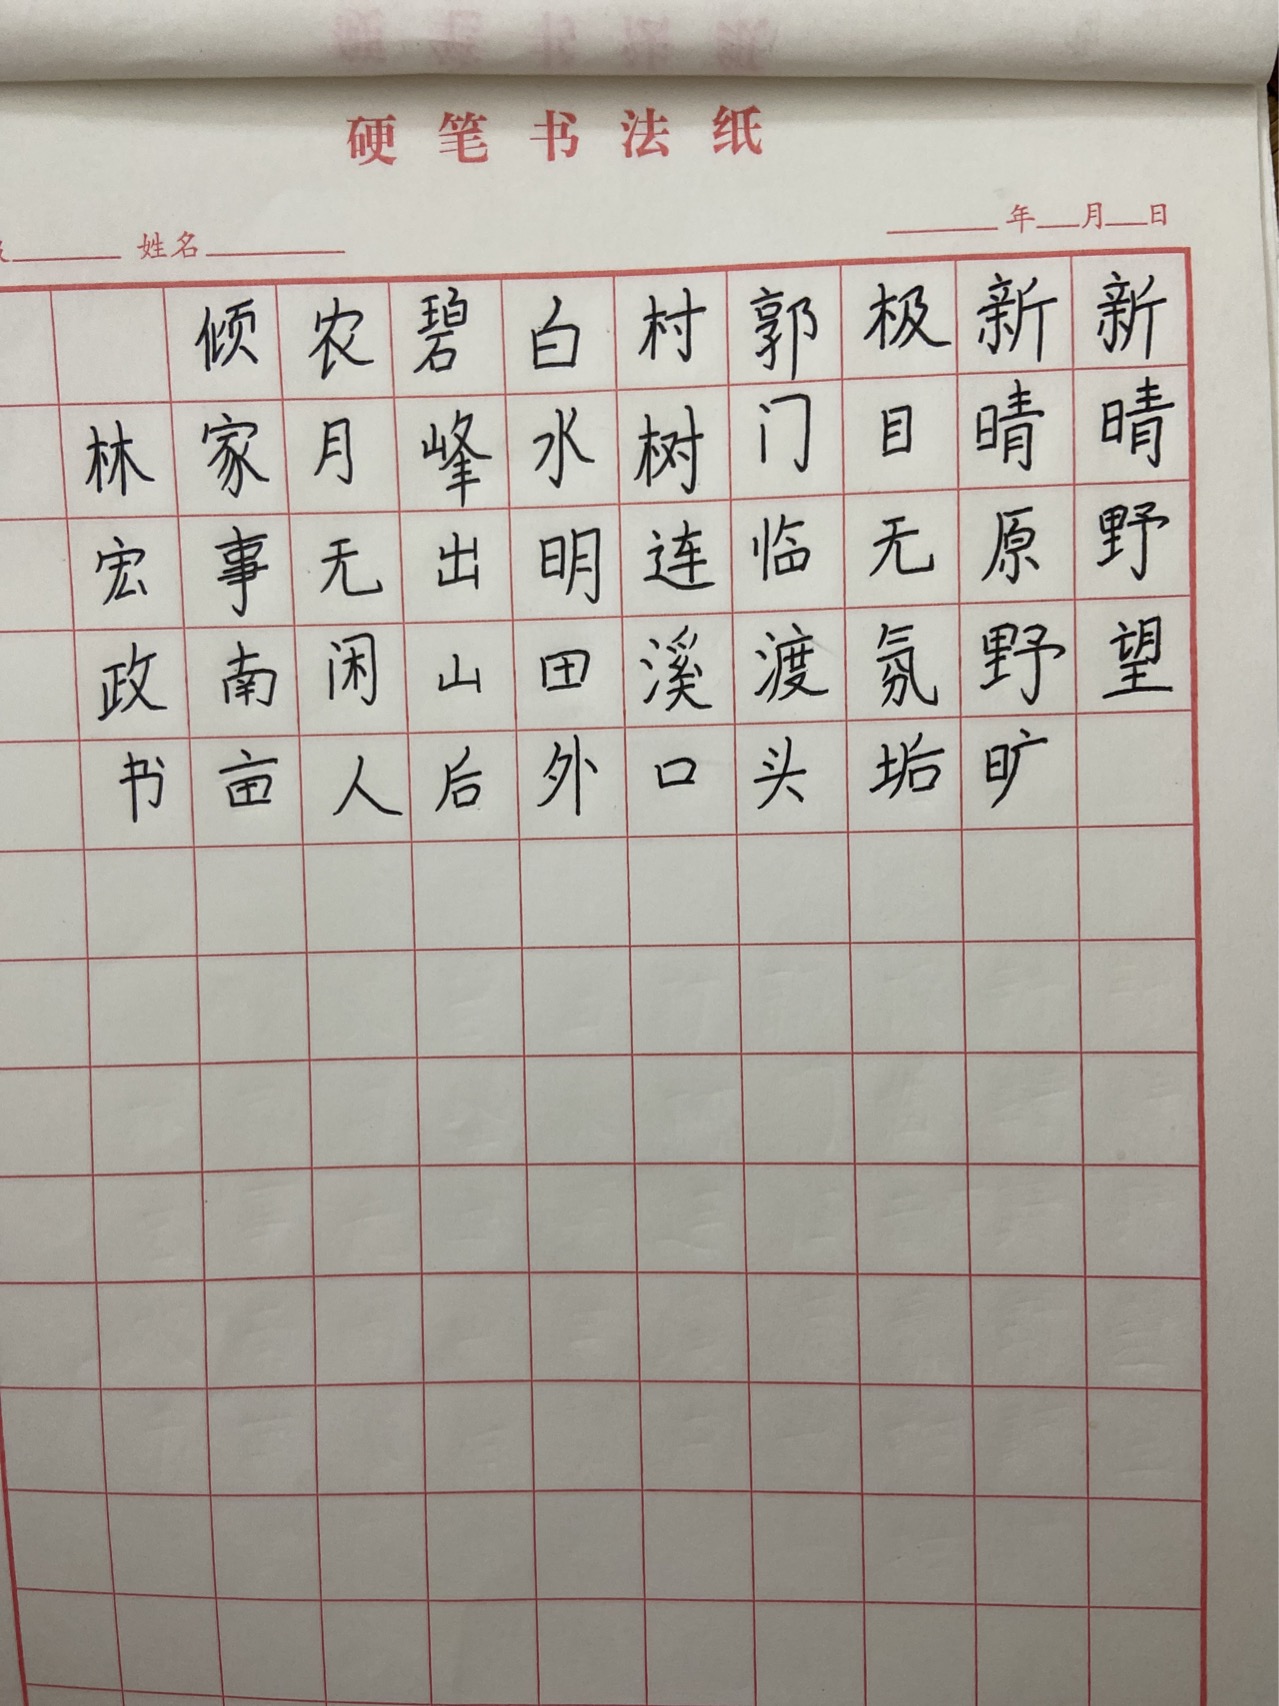 硬笔书法纸
姓名
年 月 日
新晴野望
新晴原野旷
极目无氛垢
郭门临渡头
村树连溪口
白水明田外
碧峰出山后
农月无闲人
倾家事南亩
林宏政书